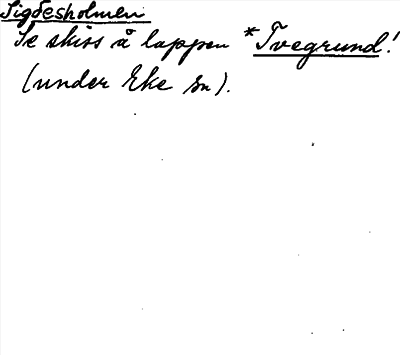 Sigdesholmen
Se skiss å lappen *Tvegrund!
(under Eke sn).